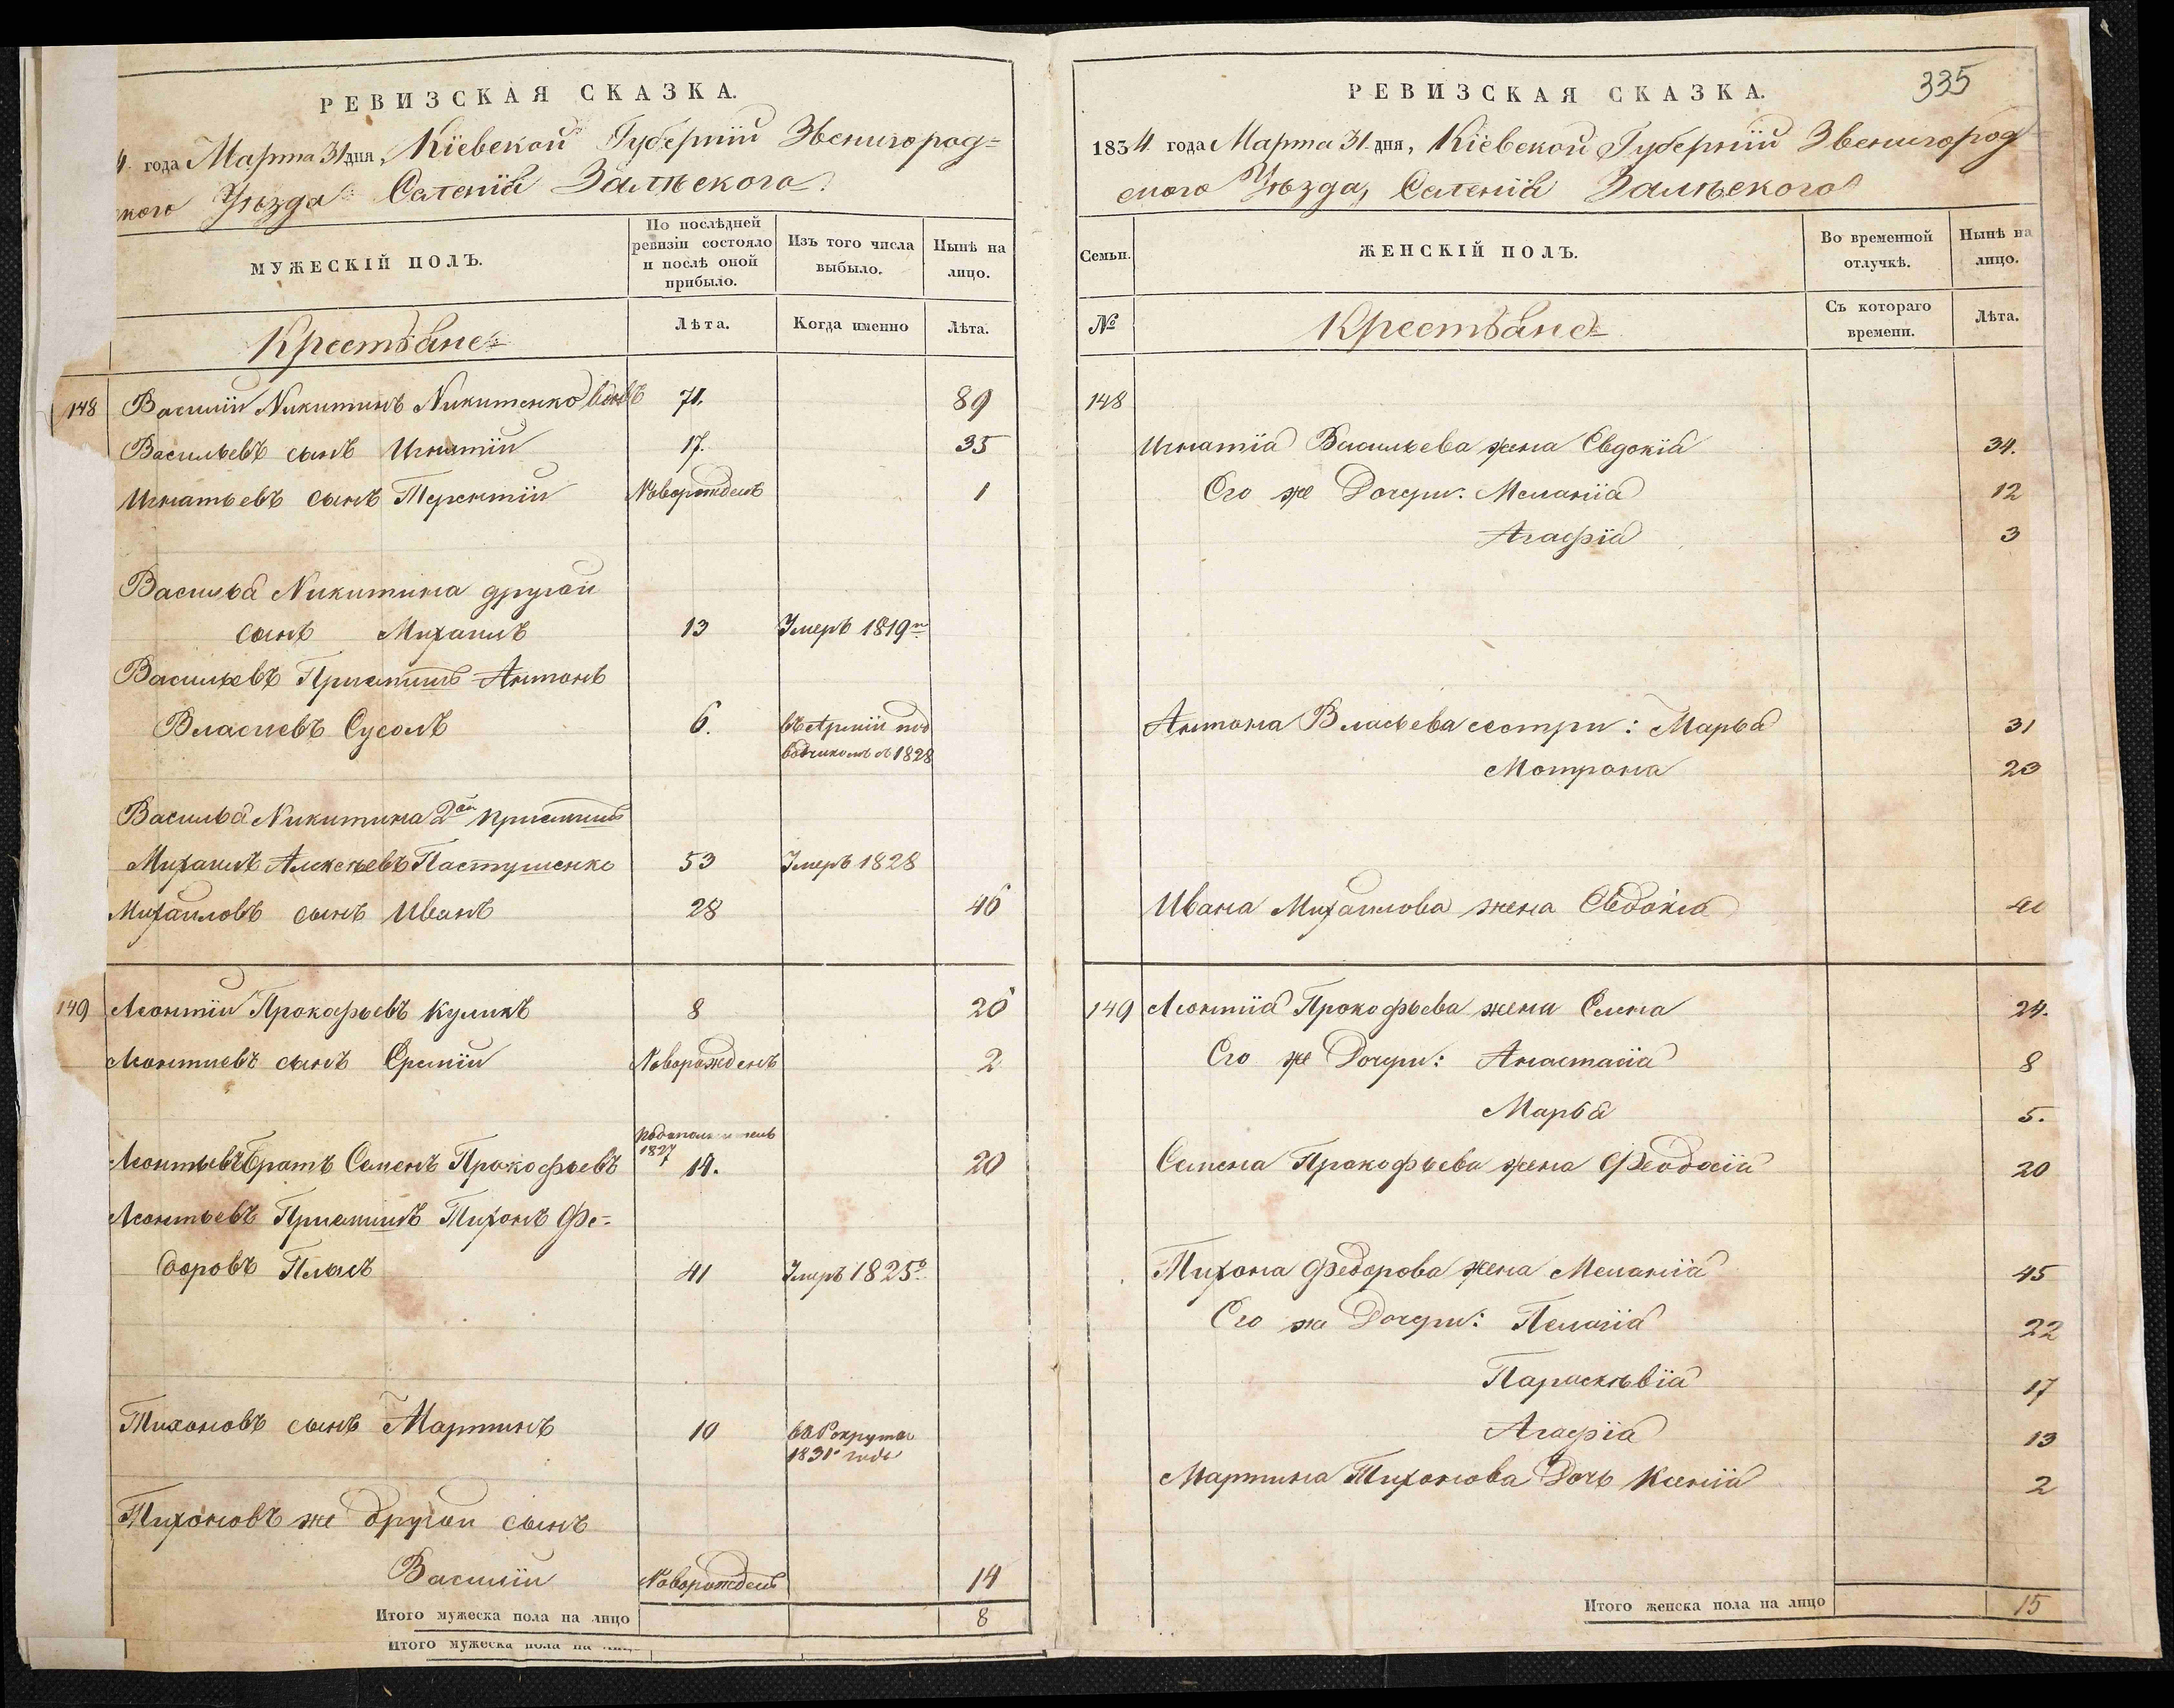 РЕВИЗСКАЯ СКАЗКА.
4. года Марта 31 дня, Кіевской Губерніи Звенигород=
ского Уѣзда Селенія Залѣского
МУЖЕСКІЙ ПОЛЪ.
По послѣдней ревизіи состояло и послѣ оной прибыло.
Изъ того числа выбыло.
Нынѣ на лицо.
Крестьяне
Лѣта.
Когда именно
Лѣта.
148 Василій Никитинъ Никитенко вдовъ 71. 89
Васильевъ сынъ Игнатій 17. 35
Игнатьевъ сынъ Терентій Новорожденъ 1
Василья Никитина другой
сынъ Михаилъ 13 Умеръ 1819
Васильевъ Приемышъ Антонъ
Власиевъ Сусолъ 6. въ Арміи под
1828
Василья Никитина 2ой приемышъ
Михаилъ Алексѣевъ Пастушенко 53 Умеръ 1828
Михайловъ сынъ Иванъ 28 46
149 Леонтій Прокофьевъ Куликъ 8 26
Леонтиевъ сынъ Еремій Новорожденъ 2
1827
Леонтьевъ Братъ Семенъ Прокофьевъ 14. 20
Леонтьевъ Приемышъ Тихонъ Фе=
доровъ 41 Умеръ 1825º
Тихоновъ сынъ Мартинъ 10 въ Рекруты
1831º году
Тихоновъ же другой сынъ
Василій Новорожденъ 14
Итого мужеска пола на лицо 8
Итого мужеска пола на лиц
РЕВИЗСКАЯ СКАЗКА.
335
1834 года Марта 31. дня, Кіевской Губерніи Звенигород
ского Уѣзда, Селенія Залѣского
Семьи.
ЖЕНСКІЙ ПОЛЪ.
Во временной отлучкѣ.
Нынѣ на лицо.
№
Крестьяне
Съ котораго времени.
Лѣта.
148
Игнатія Васильева жена Евдокія 34.
Его же Дочери: Меланія 12
Агафія 3
Антона Власьева сестри: Марья 31
Мотрона 23
Ивана Михайлова жена Евдокія
149 Леонтія Прокофьева жена Елена 24.
Его же Дочери: Анастасія 8
Марья 5.
Семена Прокофьева жена Феодосія 20
Тихона Федорова жена Меланія 45
Его же Дочери: Пелагія 22
Параскѣвія 17
Агафія 13
Мартина Тихонова Дочь Ксенія 2
Итого женска пола на лицо 15